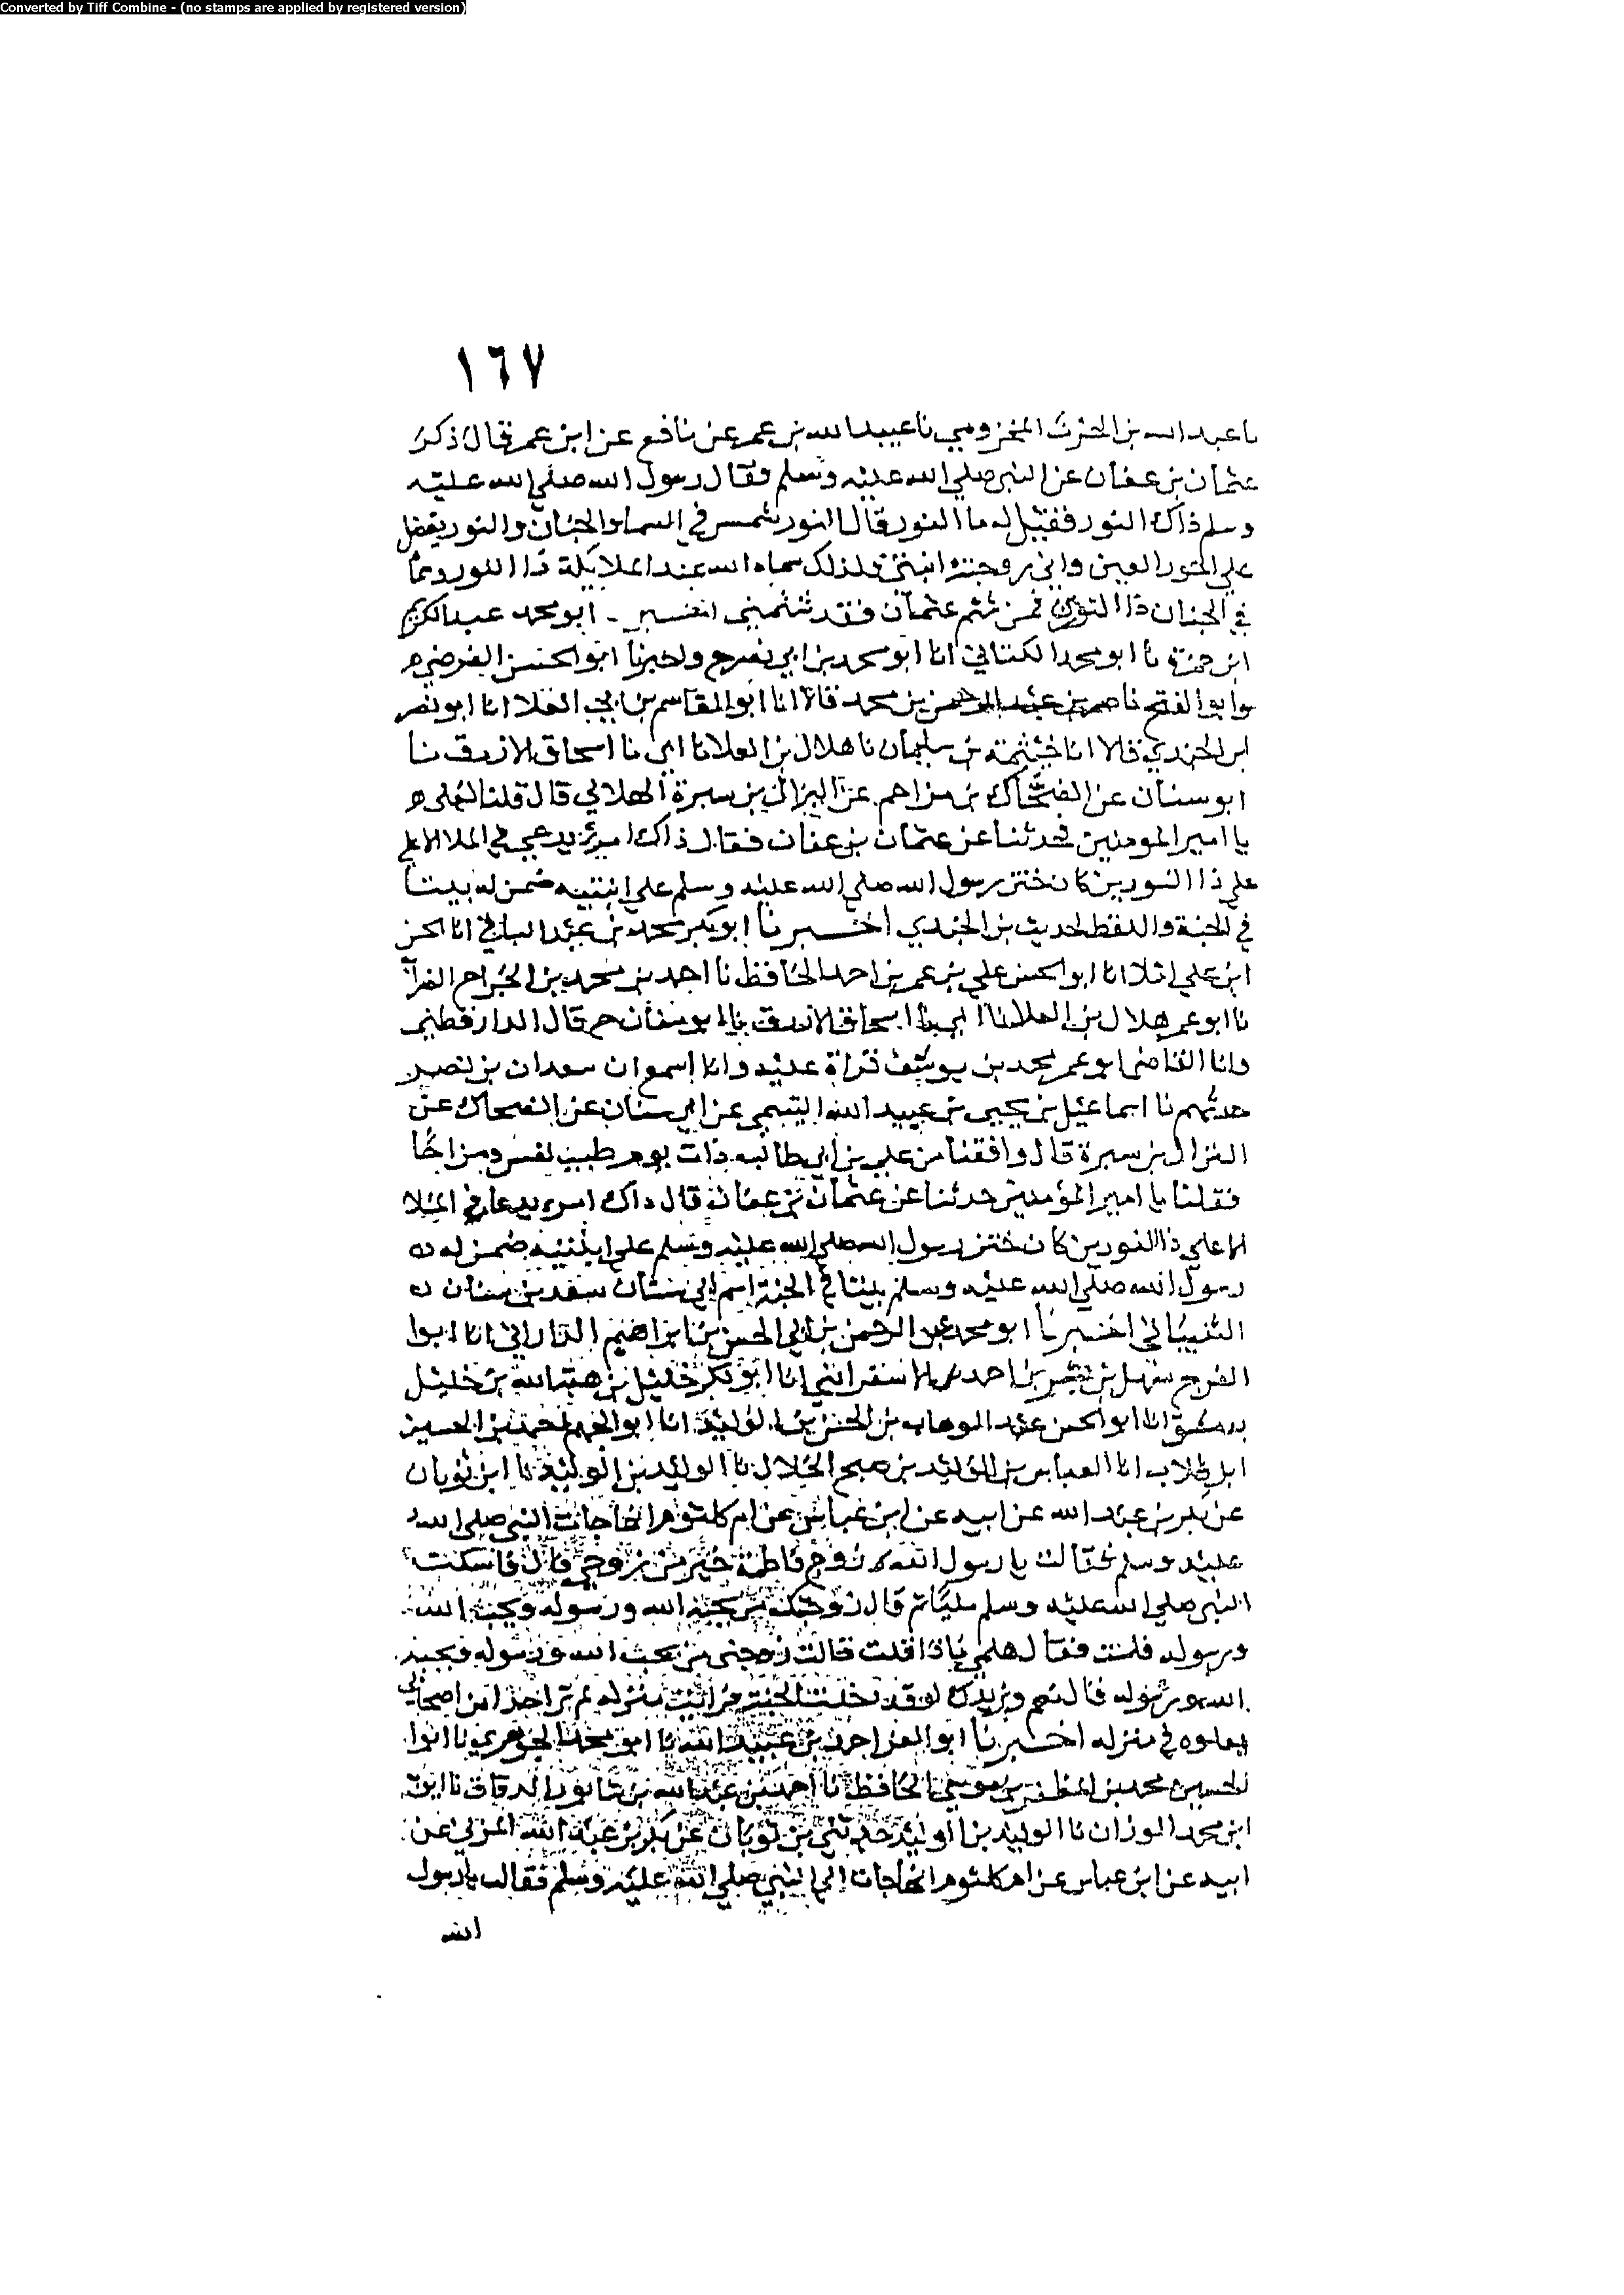 Converted by Tiff Combine - (no stamps are applied by registered version)
١٦٧
نا عبد الله بن الحرث المخزومي نا عبيد الله بن عمر عن نافع عن ابن عمر قال ذكر
عثمان بن عفان عن النبي صلي الله عليه وسلم فقال رسول الله صلي الله عليه
وسلم ذاك النور فقيل له ما النور قال النور شمس في السما والجنان والنور يفضل
علي الحور العين واني زوجته ابنتي فلذلك سماه الله عند الملايكة ذا النور وسما
في الجنان ذا النورين فمن شتم عثمان فقد شتمني اخبرنا ابو محمد عبد الكريم
ابن حمزة نا ابو محمد الكتاني انا ابو محمد بن ابي نصر ح واخبرنا ابو الحسن الفرضي
وابو الفتح ناصر بن عبد الرحمن بن محمد قالا انا ابو القاسم بن ابي العلا انا ابو نصر
ابن الجندي قالا انا خيثمة بن سليمان نا هلال بن العلا نا ابي نا اسحاق الازرق نا
ابو سنان عن الضحاك بن مزاحم عن النزال بن سبرة الهلالي قال قلنا لعلي
يا امير المومنين فحدثنا عن عثمان بن عفان فقال ذاك امرؤ يدعي في الملا الاعلي
علي ذا النورين كان ختن رسول الله صلي الله عليه وسلم علي ابنتيه ضمن له بيتا
في الجنة واللفظ لحديث بن الجندي اخبرنا ابو بكر محمد بن عبد الباقي انا الحسن
ابن علي املا انا ابو الحسن علي بن عمر بن احمد الحافظ نا احمد بن محمد بن الجراح
نا ابو عمر هلال بن العلا نا ابي نا اسحاق الازرق نا ابو سنان ح قال الدارقطني
وانا القاضي ابو عمر محمد بن يوسف قراة عليه وانا اسمع ان سعدان بن نصر
حدثهم نا اسماعيل بن يحيي بن عبيد الله التيمي عن ابي سنان عن الضحاك عن
النزال بن سبرة قال وافقنا من علي بن ابي طالب ذات يوم طيب نفس ومزاحا
فقلنا يا امير المؤمنين حدثنا عن عثمان بن عفان قال ذاك امرء يدعا في الملا
الاعلي ذا النورين كان ختن رسول الله صلي الله عليه وسلم علي ابنتيه ضمن له
رسول الله صلي الله عليه وسلم بيتا في الجنة اسم ابي سنان سعد بن سنان
الشيباني اخبرنا ابو محمد عبد الرحمن بن ابي الحسن بن ابراهيم الداراني انا ابوا
الفرج سهل بن بشر بن احمد الاسفرائني انا ابو بكر خليل بن هبة الله بن خليل
بدمشق انا ابو الحسن عبد الوهاب بن الحسن بن الوليد انا ابو الجهم احمد بن الحسين
ابن طلاب انا العباس بن الوليد بن صبح الخلال نا الوليد بن الوليد نا ابن ثوبان
عن بكر بن عبد الله عن ابيه عن ابن عباس عن ام كلثوم انها جات النبي صلي الله
عليه وسلم فقالت يا رسول الله زوج فاطمة خير من زوجي قال فاسكت
النبي صلي الله عليه وسلم مليا ثم قال زوجتك من يحبه الله ورسوله ويحب الله
ورسوله فلنت فقال هلمي ماذا قلت قالت زوجتني من يحب الله ورسوله ويحبه
الله ورسوله قال نعم وازيدك لو قد دخلت الجنة فرايت منزله لم تر احدا من اصحابي
يعلوه في منزله اخبرنا ابو العز احمد بن عبيد الله نا ابو محمد الجوهري نا ابوا
الحسين محمد بن المظفر بن موسي الحافظ نا احمد بن عبد الله بن سابور الدقاق نا ايوب
ابن محمد الوزان نا الوليد بن الوليد حدثني بن ثوبان عن بكر بن عبد الله المزني عن
ابيه عن ابن عباس عن ام كلثوم انها جات الي النبي صلي الله عليه وسلم فقالت يا رسول
الله